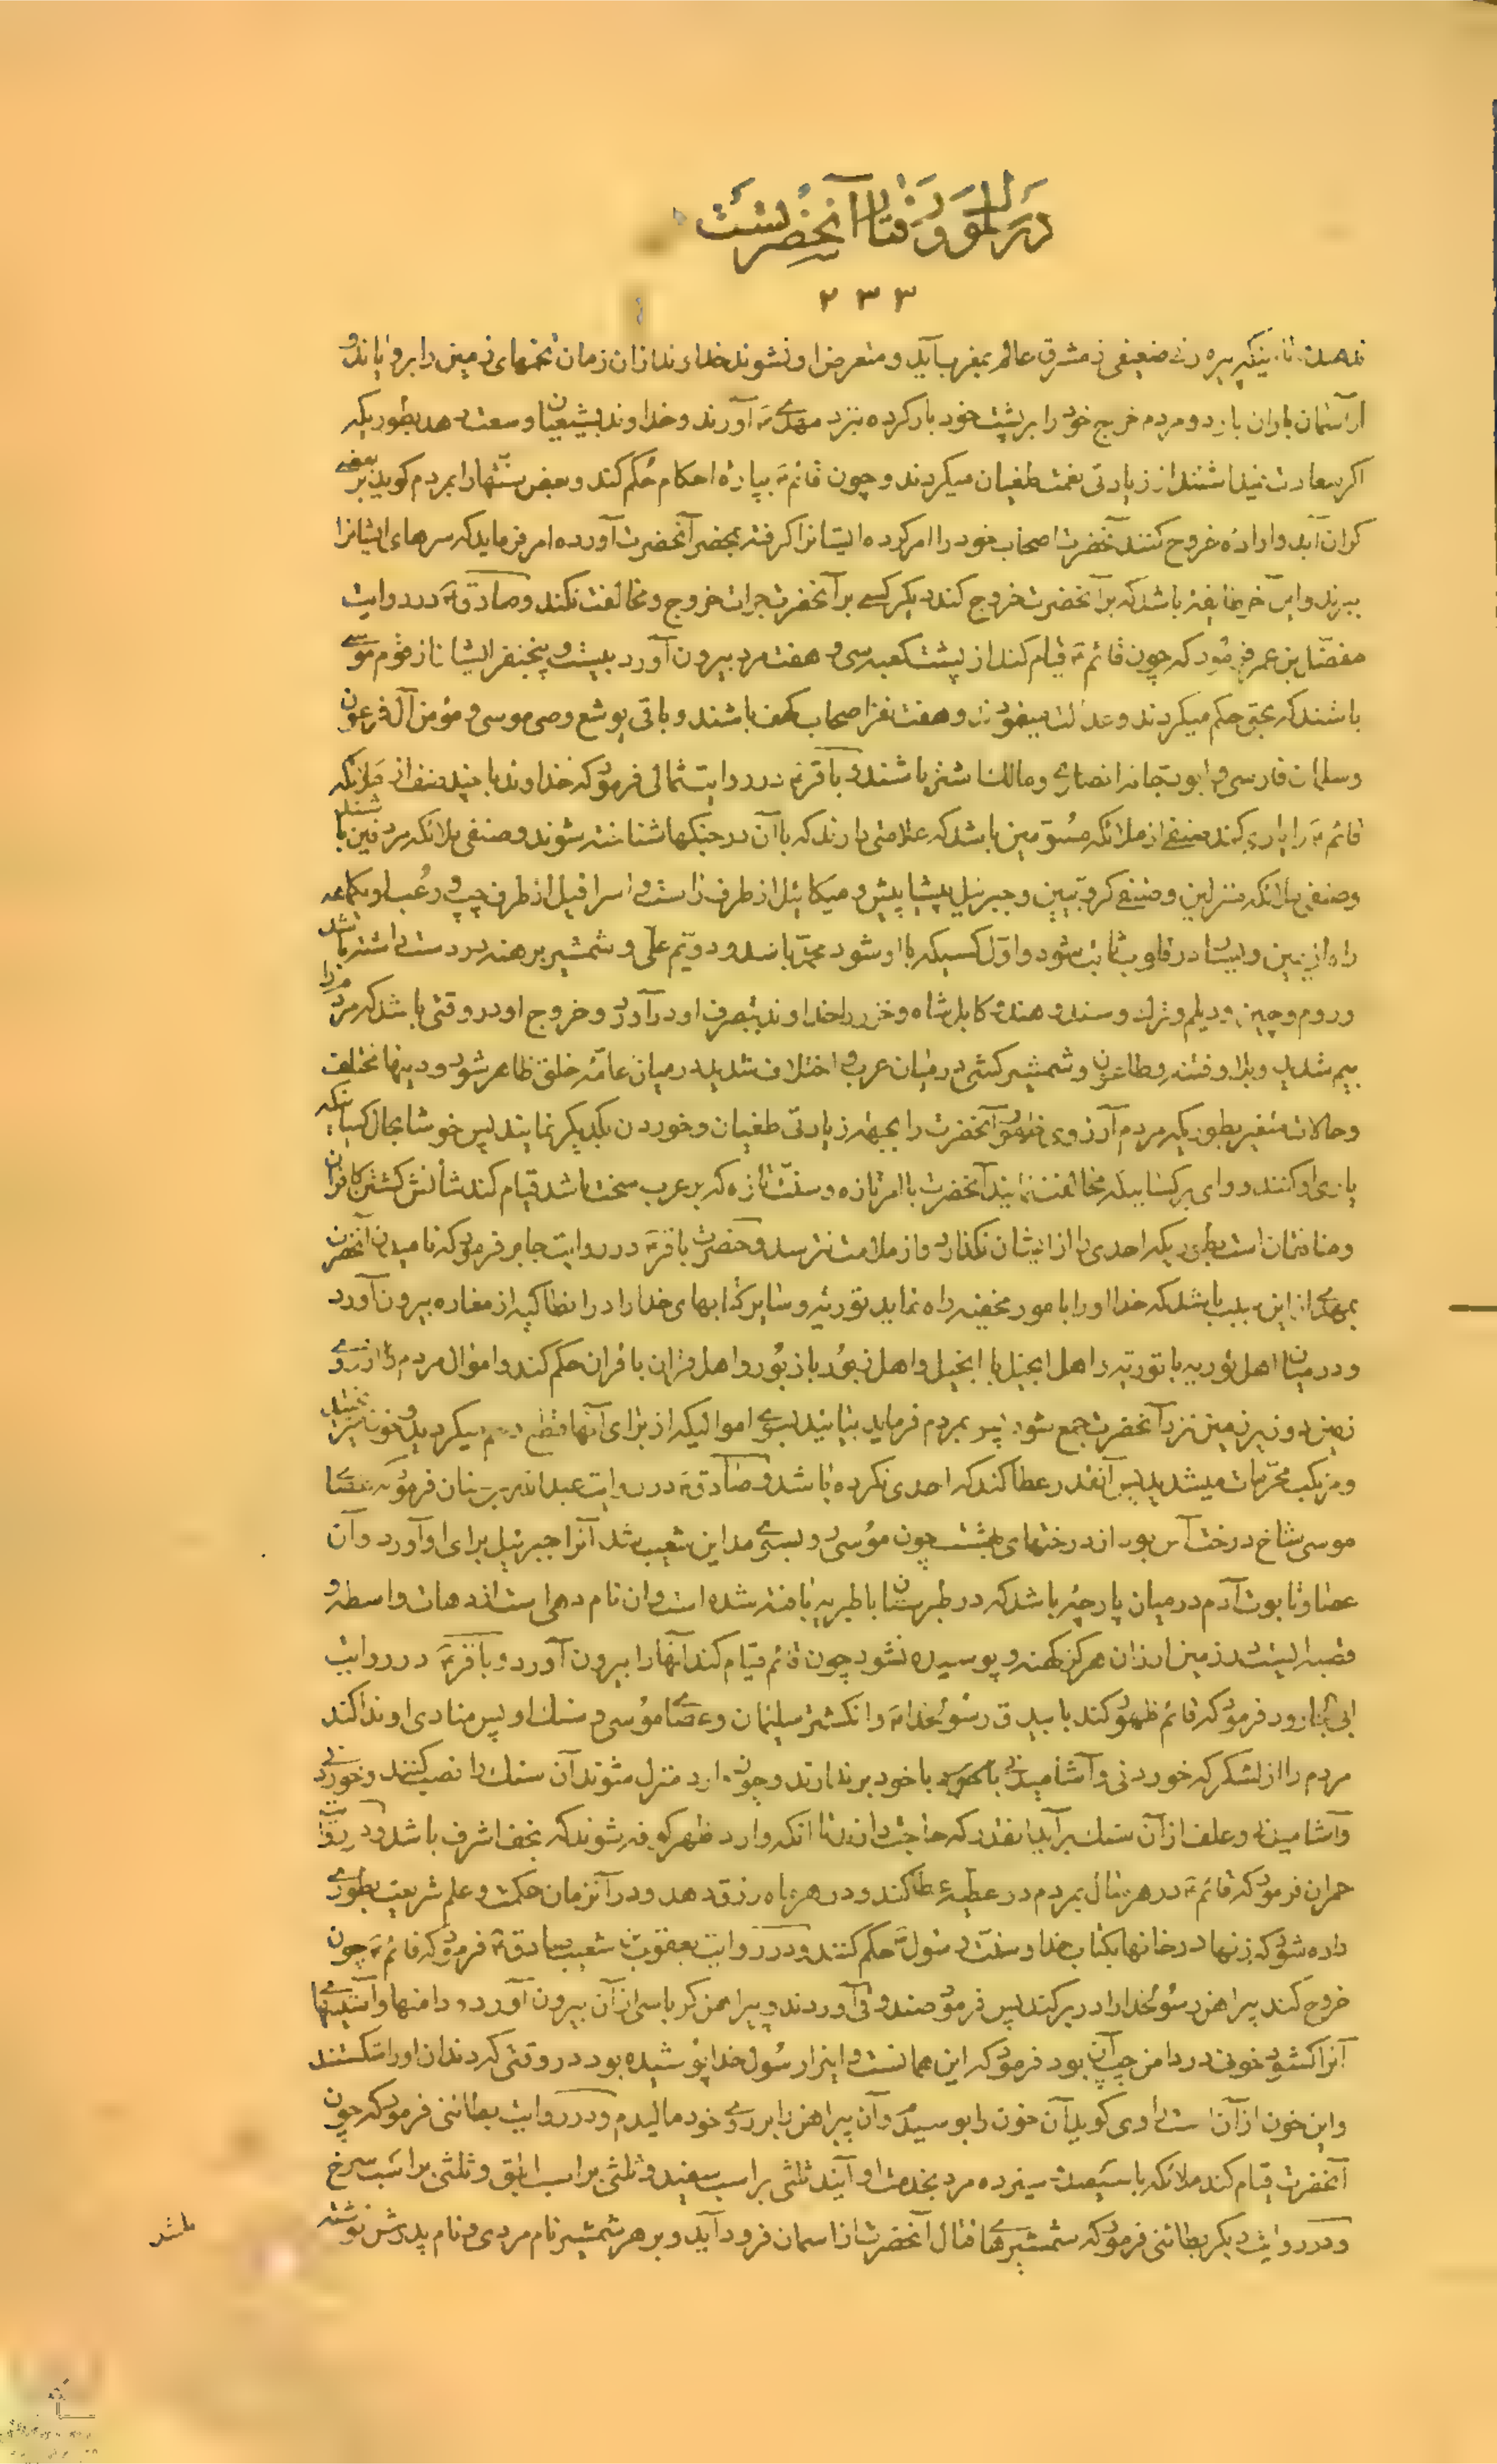 در سلوک و رفتار آنحضرتست
۲۳۳
پیره زن ضعیفی از مشرق عالم بمغرب آید و متعرض او نشوند خداوند از ان زمان تخمهای زمین را برویاند و
از آسمان باران بارد و مردم خرج خود را بر پشت خود بار کرده بنزد مهدی ع آورند و خداوند بشیعیان وسعت دهد بطوریکه
اگر سعادت نیداشتند از زیادتی نعمت طغیان میکردند و چون قائم ع بپاره احکام حکم کند و بعض سنتها را بمردم گوید بر بعضی
گران آید و اراده خروج کنند آنحضرت اصحاب خود را امر کرده ایشانرا گرفته بمحضر آنحضرت آورده امر فرماید که سرهای ایشانرا
ببرند و این آخر طایفه باشد که بر آنحضرت خروج کند دیگر کسی بر آنحضرت جرات خروج و مخالفت نکند و صادق ع در روایت
مفضل بن عمر فرمود که چون قائم ع قیام کند از پشت کعبه سی و هفت مرد بیرون آورد بیست و پنجنفر ایشان از قوم موسی
باشند که بحق حکم میکردند و عدالت مینمودند و هفت نفر اصحاب کهف باشند و باقی یوشع وصی موسی و مؤمن آل فرعون
و سلمان فارسی و ابو دجانه انصاری و مالک اشتر باشند و باقر ع در روایت ثمالی فرمود که خداوند با چند صنف از ملائکه
قائم ع را یاری کند صنفی از ملائکه مسومین باشد که علامتی دارند که با آن در جنگها شناخته شوند و صنفی ملائکه مردفین باشند
و صنفی ملائکه منزلین و صنفی کروبیین و جبرئیل پیشاپیش و میکائیل از طرف راست و اسرافیل از طرف چپ و رعب او یکماهه
راه از یمین و یسار در قلوب ثابت شود و اول کسیکه با او شود محمد باشد و دویم علی و شمشیر برهنه در دست داشته باشد
و روم و چین و دیلم و ترک و سند و هند و کابل شاه و خزر را خداوند بتصرف او در آورد و خروج او در وقتی باشد که مردم را
بیم شدید و بلا و فتنه و طاعون و شمشیر کشی در میان عرب و اختلاف شدید در میان عامه خلق ظاهر شود و دینها مختلف
و حالات متغیر بطوریکه مردم آرزوی ظهور آنحضرت را بجهة زیادتی طغیان و خوردن یکدیگر نمایند پس خوشا بحال کسانیکه
یاری او کنند و وای بر کسانیکه مخالفت نمایند آنحضرت با امر تازه و سنت تازه که بر عرب سخت باشد قیام کند شأنش کشتن کافران
و منافقان است بطوریکه احدی را از ایشان نگذارد و از ملامت نترسد و حضرت باقر ع در روایت جابر فرمود که نامیدن آنحضرت
بمهدی از این سبب باشد که خدا او را بامور مخفیه راه نماید توریة و سایر کتابهای خدا را در انطاکیه از مغاره بیرون آورد
و در میان اهل توریه با توریة و اهل انجیل با انجیل و اهل زبور با زبور و اهل قران با قران حکم کند و اموال مردم از روی
زمین و زیر زمین نزد آنحضرت جمع شود پس بمردم فرماید بیائید بسوی اموالیکه از برای آنها قطع رحم میکردید و خونها میریختید
و مرتکب محرمات میشدید پس آنقدر عطا کند که احدی نکرده باشد و صادق ع در روایت عبدالله بن سنان فرمود که عصای
موسی شاخ درخت آس بود از درختهای بهشت چون موسی رو بسوی مداین شعیب شد آنرا جبرئیل برای او آورد و آن
عصا و تابوت آدم در میان دریاچه باشد که در طبرستان یا طبریه یافته شده است و ان نام دهی است از دهات واسطه و
قصبه ایست در زمین اردن هرگز کهنه و پوسیده نشود چون قائم قیام کند آنها را بیرون آورد و باقر ع در روایت
ابی الجارود فرمود که قائم ظهور کند با بیدق رسولخدا ص و انگشتر سلیمان و عصای موسی و سنگ او پس منادی او ندا کند
مردم را از لشکر که خوردنی و آشامیدنی با خود برندارند و چون وارد منزل شوند آن سنگ را نصب کنند و خوردنی
و آشامیدنی و علف از آن سنگ برآید انقدر که حاجت دارند تا انکه وارد ظهر کوفه شوند که نجف اشرف باشد و در روایت
حمران فرمود که قائم ع در هر سال بمردم دو عطیه عطا کند و در هر ماه رزق دهد و در آنزمان حکمت و علم شریعت بطوری
داده شود که زنها در خانها بکتاب خدا و سنت رسول ص حکم کنند و در روایت یعقوب بن شعیب صادق ع فرمود که قائم ع چون
خروج کند پیراهن رسولخدا را در بر کند پس فرمود صندوقی آوردند و پیراهن کرباسی از آن بیرون آورد و دامنها و آستینهای
آنرا گشود خونی در دامن چپ آن بود فرمود که این همانست و اینرا رسول خدا پوشیده بود در وقتی که دندان او را شکستند
و این خون از آن است راوی گوید آن خون را بوسیدم و آن پیراهن را بر روی خود مالیدم و در روایت بطائنی فرمود که چون
آنحضرت قیام کند ملائکه با سیصد و سیزده مرد بخدمت او آیند ثلثی بر اسب سفید و ثلثی بر اسب ابلق و ثلثی بر اسب سرخ
و در روایت دیگر بطائنی فرمود که شمشیرهای قتال آنحضرت از اسمان فرود آید و بر هر شمشیر نام مردی و نام پدرش نوشته
باشد